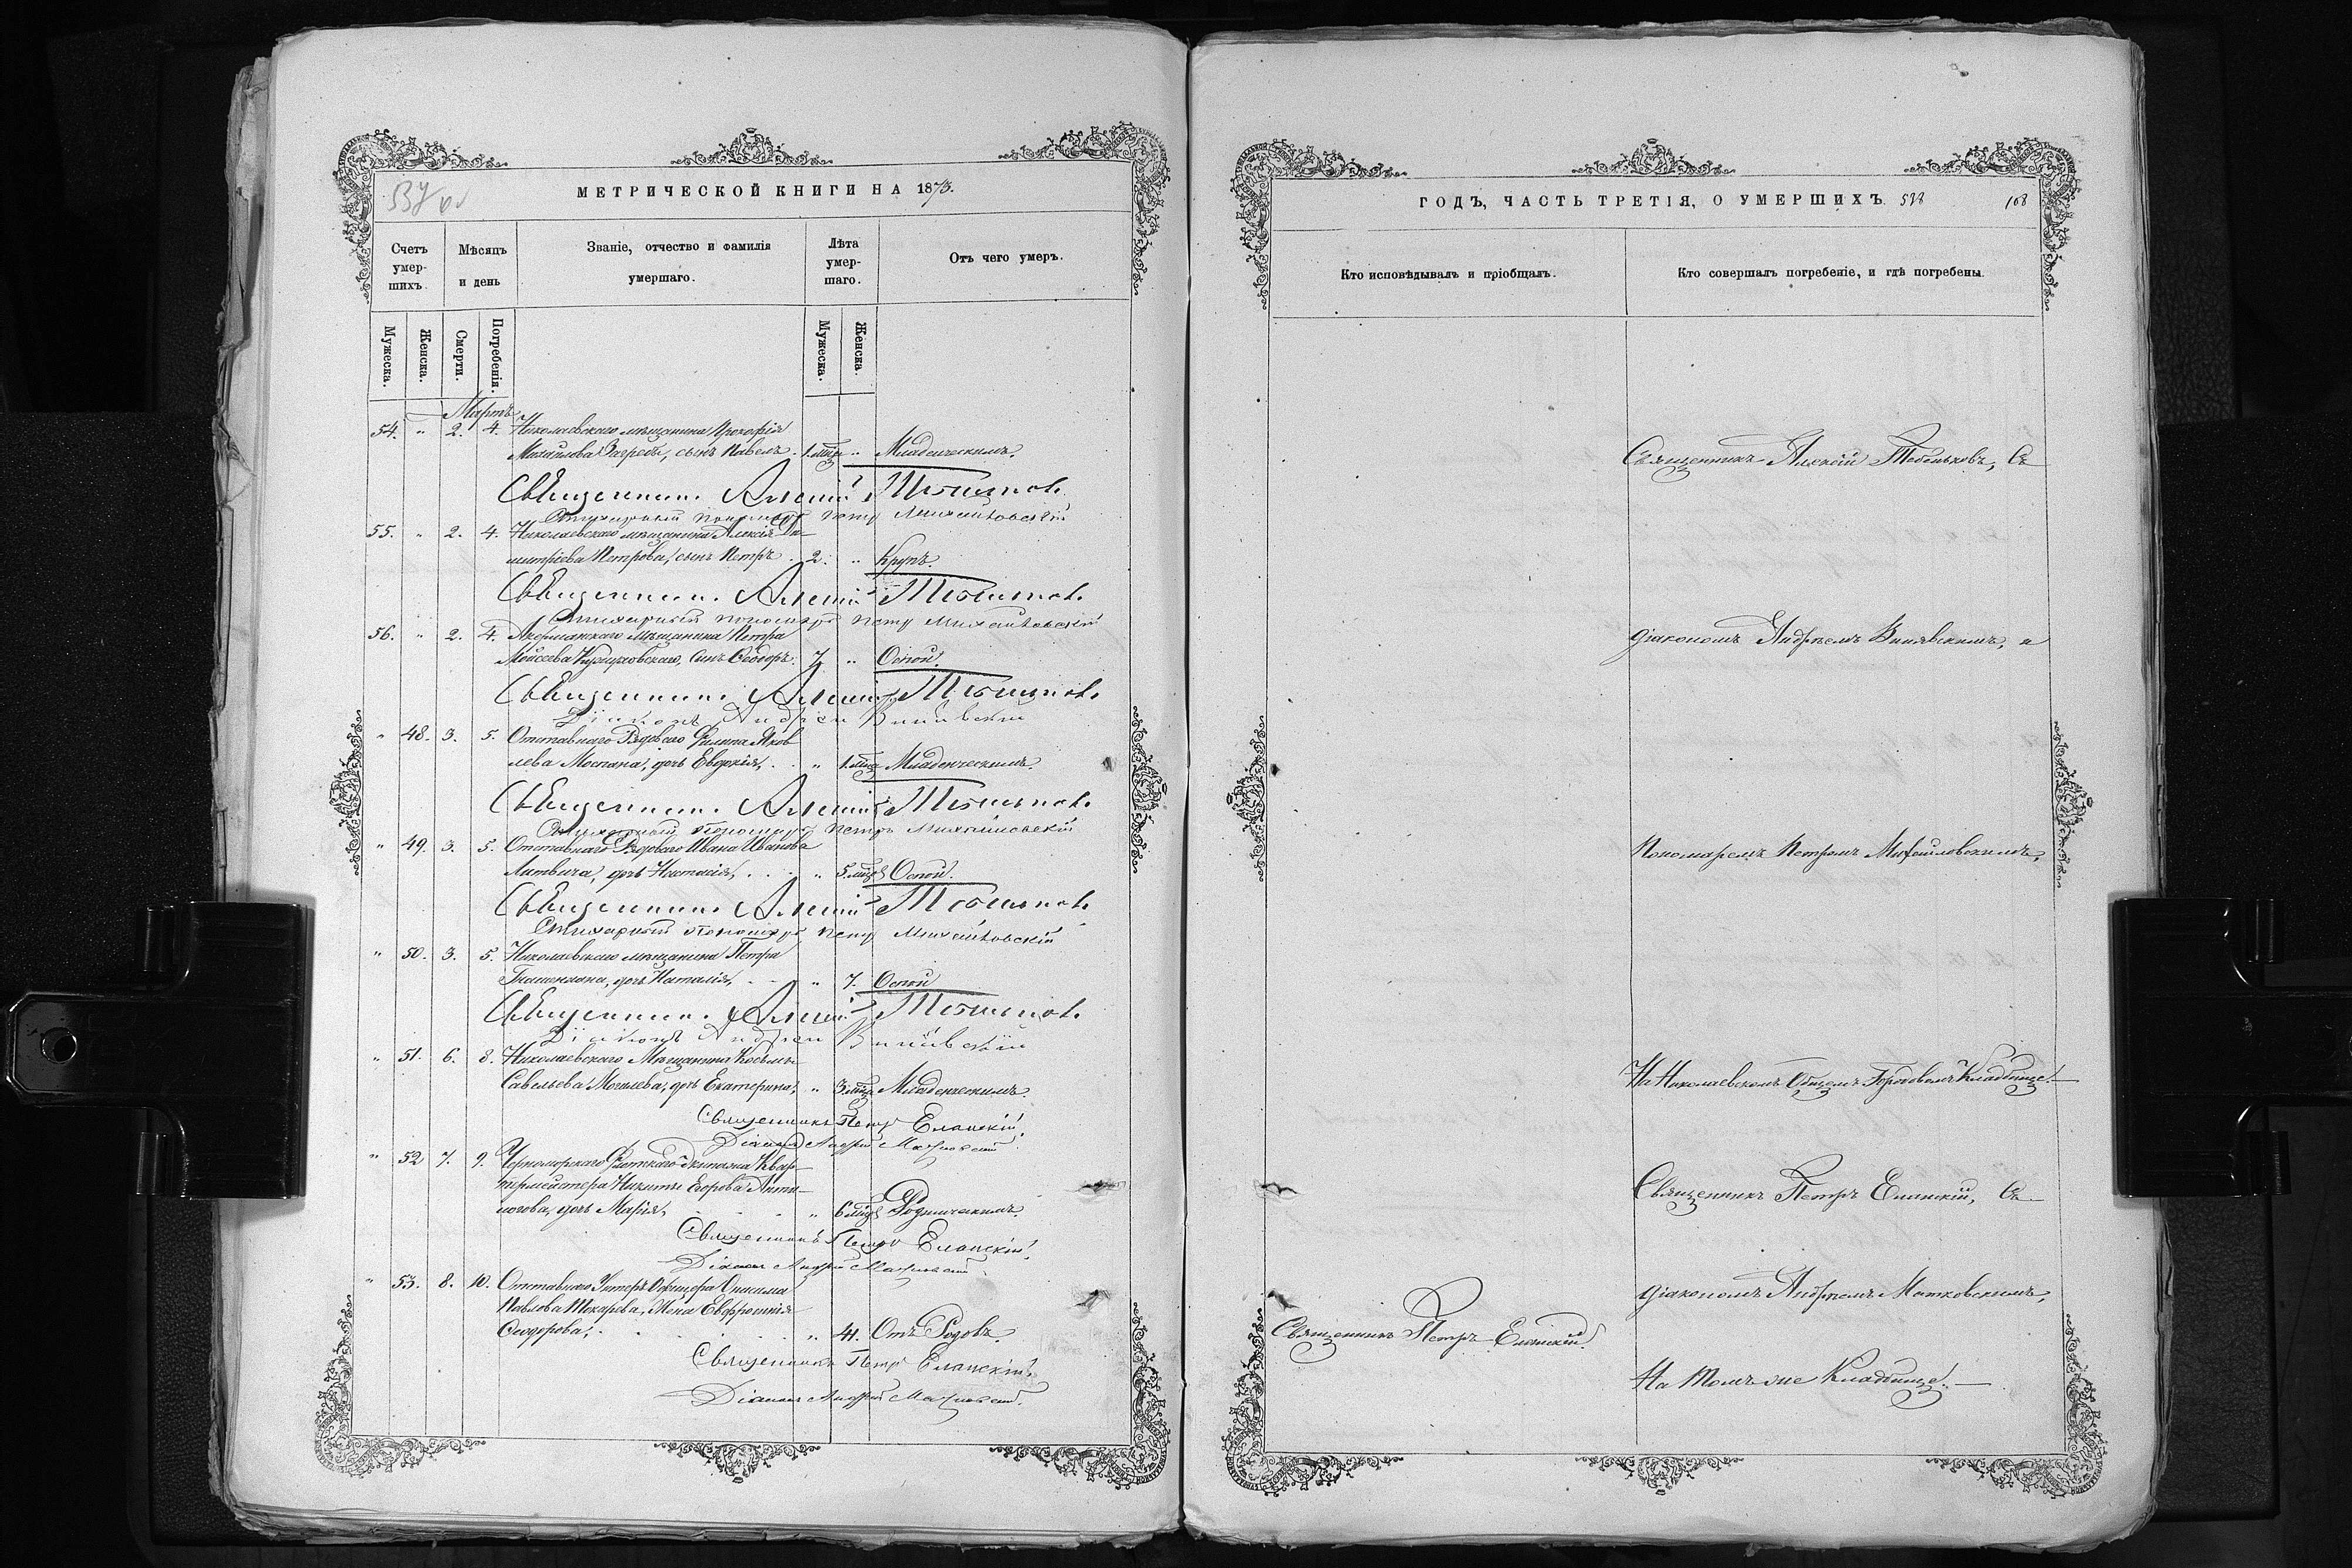 МЕТРИЧЕСКОЙ КНИГИ НА 1873.
Счетъ умер-шихъ.
Мѣсяцъ и день
Званіе, отчество и фамилія умершаго.
Лѣта умер-шаго.
Отъ чего умеръ.
Мужеска.
Женска.
Смерти.
Погребенія.
Мужеска.
Женска.
Мартъ
54. " 2. 4. Николаевскаго мѣщанина Прокофія
Михайлова сынъ Павелъ. 1. мѣс. " Младенческимъ.
Священникъ Алексій
Стихарный пономарь Петръ Михайловскій
55. " 2. 4. Николаевскаго мѣщанина Алексія Ди-
митріева Петрова, сынъ Петръ. 2. " Крупъ.
Священникъ Алексій
Стихарный пономарь Петръ Михайловскій
56. " 2. 4. Мѣщанина Петра
Моисеева сынъ Ѳеодоръ. 7 " Оспой.
Священникъ Алексій
Діаконъ Андрей
" 48. 3. 5. Отставнаго Рядоваго Филипа Яков
лева дочь Евдокія, " 1. мѣс. Младенческимъ.
Священникъ Алексій
Стихарный пономарь Петръ Михайловскій
" 49. 3. 5. Отставнаго Рядоваго Ивана Иванова
Литвина, дочь Настасія, " 5. мѣс. Оспой.
Священникъ Алексій
Стихарный пономарь Петръ Михайловскій
" 50. 3. 5. Николаевскаго мѣщанина Петра
дочь Наталія, " 7. Оспой
Священникъ Алексій
Діаконъ Андрей
" 51. 6. 8. Николаевскаго Мѣщанина Косьмы
Савельева дочь Екатерина, " 3. мѣс. Младенческимъ.
Священникъ Петръ Еланскій.
Діаконъ Андрей
" 52 7. 9. Черноморскаго Флотскаго Экипажа Квар-
термейстера Никиты Егорова Анти-
пова, дочь Марія, " 6 мѣс. Родимческимъ.
Священникъ Петръ Еланскій.
Діаконъ Андрей
" 53. 8. 10. Отставнаго Унтеръ Офицера Онисима
Павлова Токарева, Жена Евфросинія
Ѳеодорова, " 41. Отъ Родовъ.
Священникъ Петръ Еланскій.
Діаконъ Андрей
ГОДЪ, ЧАСТЬ ТРЕТІЯ, О УМЕРШИХЪ. 538 168
Кто исповѣдывалъ и пріобщалъ.
Кто совершалъ погребеніе, и гдѣ погребены.
Священникъ Алексій Съ
діакономъ Андреемъ и
Пономаремъ Петромъ Михайловскимъ,
На Николаевскомъ Общемъ Городовомъ Кладбище.
Священникъ Петръ Еланскій, Съ
діакономъ Андреемъ Матковскимъ,
Священникъ Петръ Еланскій.
На томъ же Кладбище.